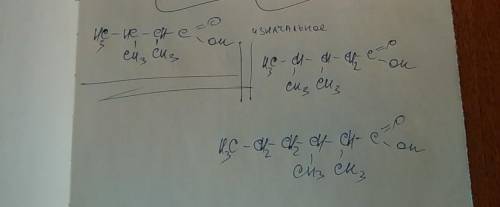 H₃C - HC - CH - C = O
OH
CH₃ CH₃
ИЗНАЧАЛЬНОЕ
H₃C - CH - CH - CH₂ C = O
OH
CH₃ CH₃
H₃C - CH₂ - CH₂ - CH - CH - C = O
OH
CH₃ CH₃